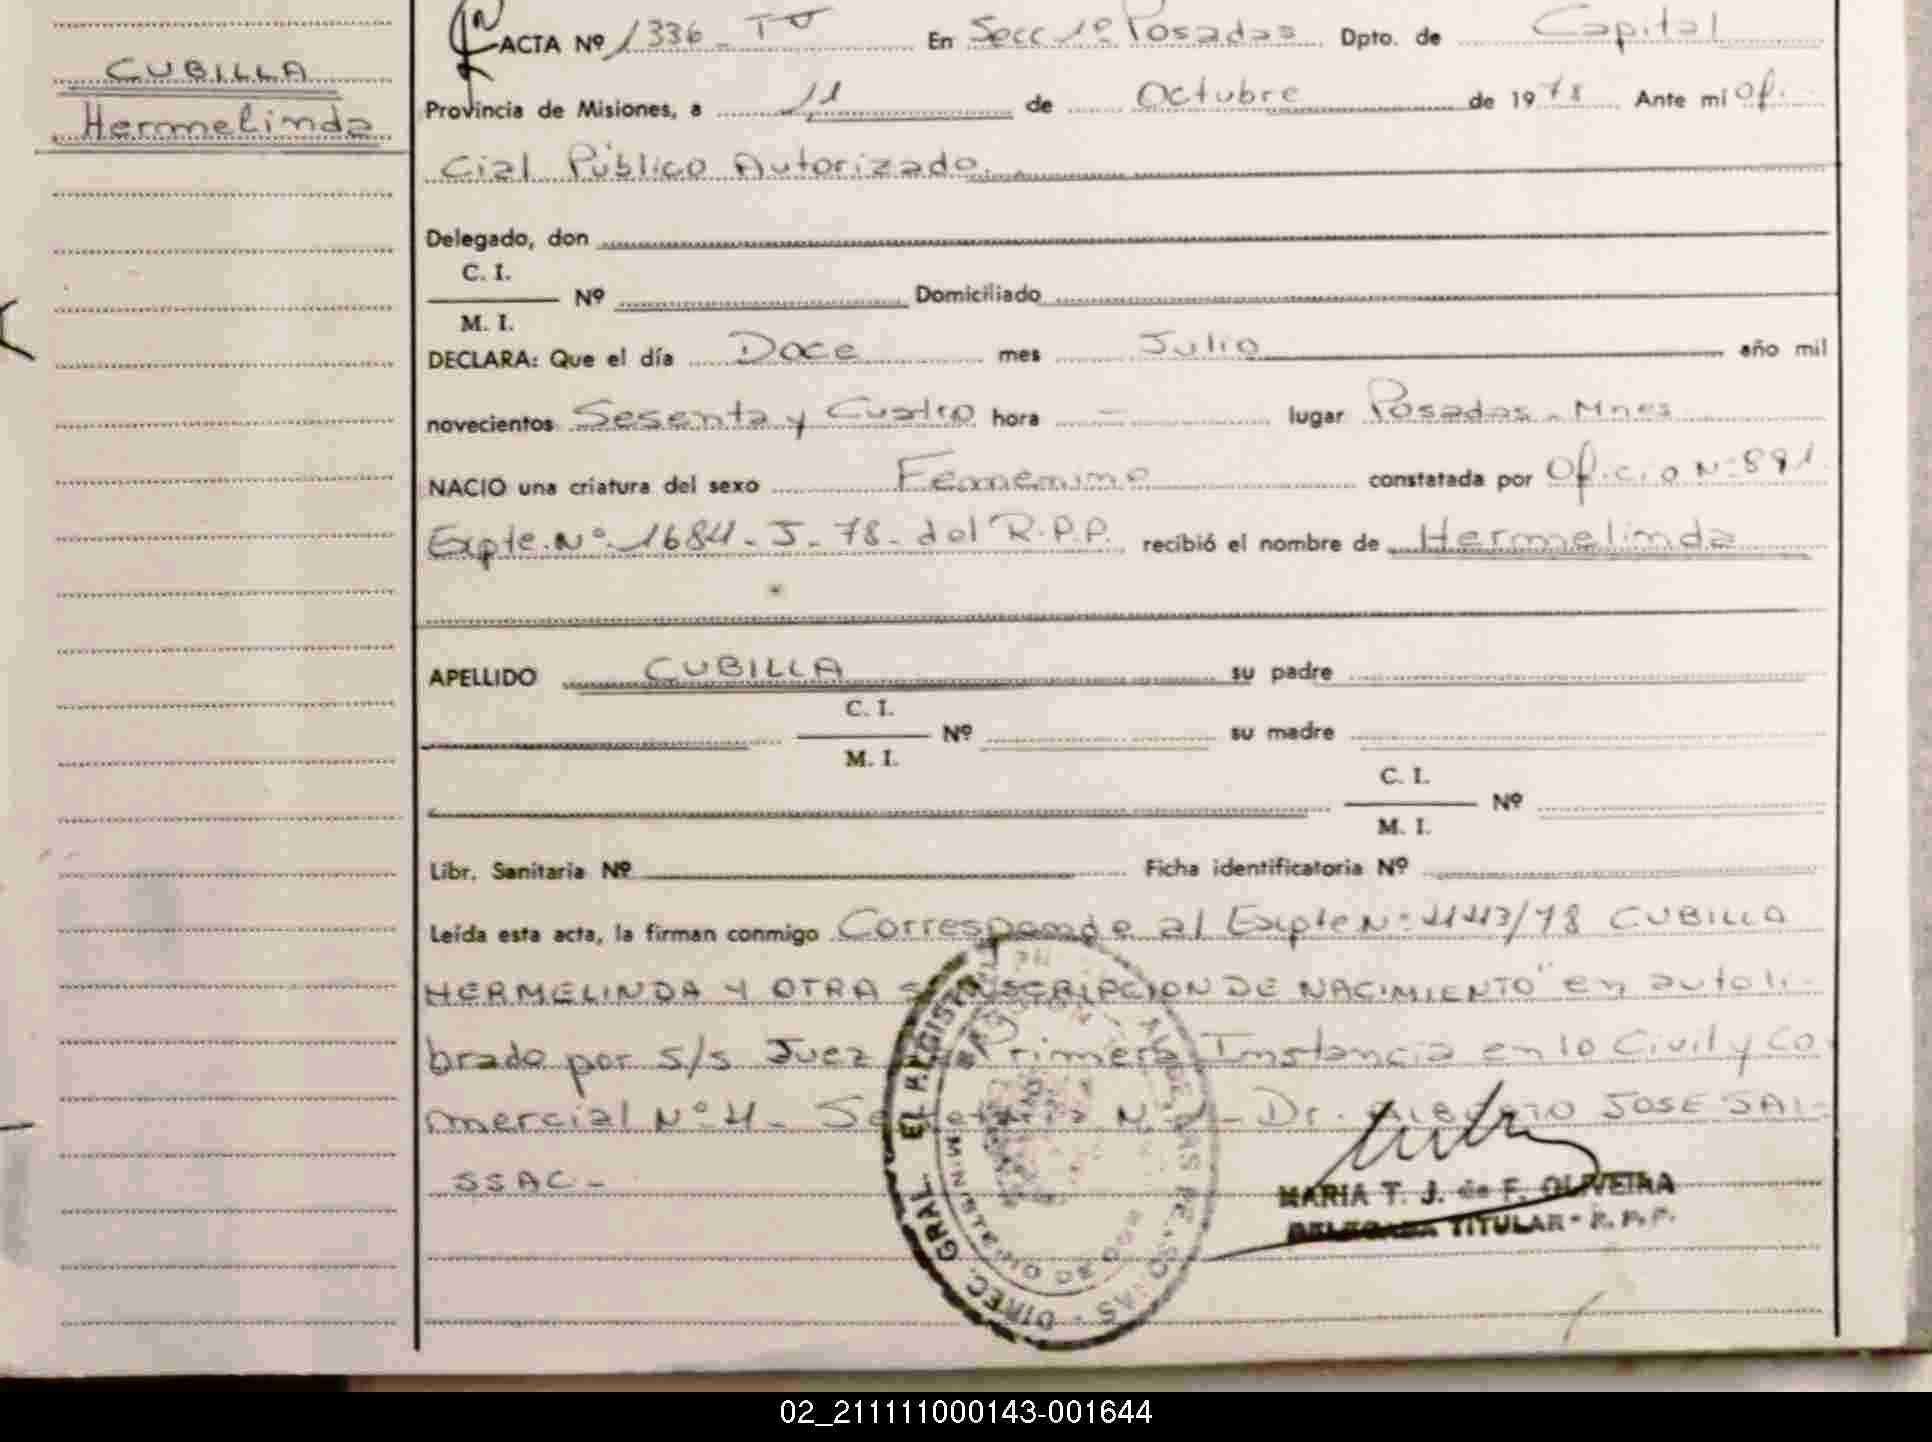 CUBILLA
Hermelinda
ACTA Nº 1336 - Tº V En Secc 1º Posadas Dpto. de Capital
Provincia de Misiones, a 11 de Octubre de 1978 Ante mi Ofi-
cial Público Autorizado.
Delegado, don
C. I.
Nº Domiciliado
M. I.
DECLARA: Que el día Doce mes Julio año mil
novecientos Sesenta y Cuatro hora - lugar Posadas - Mnes
NACIO una criatura del sexo Femenino constatada por Oficio Nº 891
Expte. Nº 1684 - J - 78 - del R.P.P. recibió el nombre de Hermelinda
APELLIDO CUBILLA su padre
C. I.
Nº su madre
M. I.
C. I.
Nº
M. I.
Libr. Sanitaria Nº Ficha identificatoria Nº
Leída esta acta, la firman conmigo Corresponde al Expte Nº CUBILLA
HERMELINDA Y OTRA INSCRIPCION DE NACIMIENTO" en auto li-
brado por S/S Juez Primera Instancia en lo Civil y Co-
mercial Nº 4 - Dr. ALBERTO JOSE JAI-
SSAC -
DIREC. GRAL. EL REGISTRO
MARIA T. J. de F. OLIVEIRA
DELEGADA TITULAR - R. P. P.
02_211111000143-001644